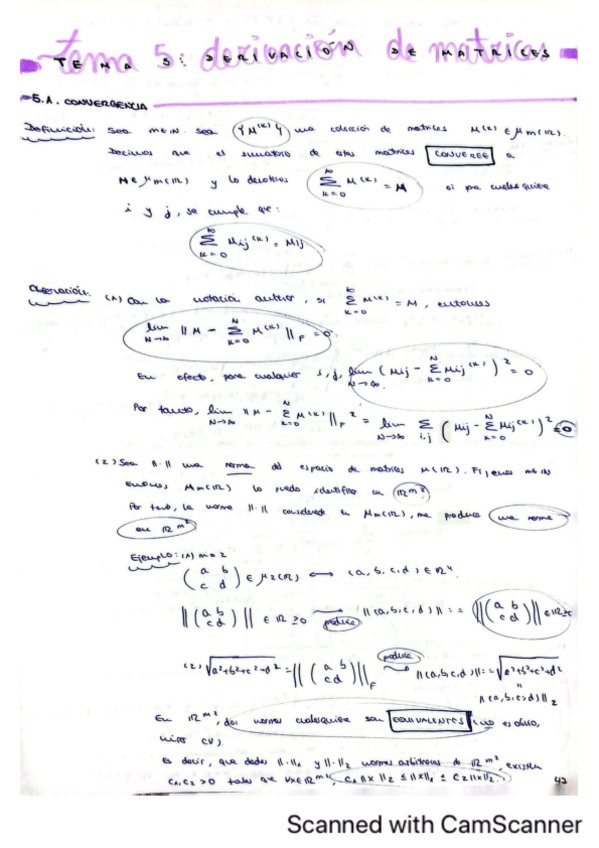 Tema 5: derivación de matrices
TEMA 5: DERIVACIÓN DE MATRICES
5.1. CONVERGENCIA
Definición: Sea m∈ℕ. Sea {M^(k)} una colección de matrices M^(k) ∈ M_m(ℝ).
Decimos que el sumatorio de estas matrices CONVERGE a
M∈M_m(ℝ) y lo denotamos ∑_{k=0}^∞ M^(k) = M si para cualesquiera
i y j, se cumple que:
∑_{k=0}^∞ M_ij^(k) = M_ij
Observación: (1) Con la notación anterior, si ∑_{k=0}^∞ M^(k) = M, entonces
lim_{N→∞} || M - ∑_{k=0}^N M^(k) ||_F = 0
En efecto, para cualquier i, j, lim_{N→∞} (M_ij - ∑_{k=0}^N M_ij^(k))^2 = 0
Por tanto, lim_{N→∞} || M - ∑_{k=0}^N M^(k) ||_F^2 = lim_{N→∞} ∑_{i,j} (M_ij - ∑_{k=0}^N M_ij^(k))^2 = 0
(2) Sea ||·|| una norma del espacio de matrices M(ℝ). Fijemos m∈ℕ
entonces, M_m(ℝ) lo puedo identificar con ℝ^{m^2}.
Por tanto, la norma ||·|| considerada en M_m(ℝ), me produce una norma
en ℝ^{m^2}
Ejemplo: (1) m=2
(a b; c d) ∈ M_2(ℝ) ⟷ (a,b,c,d) ∈ ℝ^4.
||(a b; c d)|| ∈ ℝ≥0 ⟶ produce ||(a,b,c,d)|| := ||(a b; c d)|| ∈ ℝ≥0
(2) √(a²+b²+c²+d²) = ||(a b; c d)||_F ⟶ produce ||(a,b,c,d)|| := √(a²+b²+c²+d²)
"
||(a,b,c,d)||_2
En ℝ^{m^2}, dos normas cualesquiera son EQUIVALENTES (no es obvio,
CV).
Es decir, que dadas ||·||_1 y ||·||_2 normas arbitrarias de ℝ^{m^2}, existen
c_1, c_2 > 0 tales que ∀x∈ℝ^{m^2}, c_1||x||_2 ≤ ||x||_1 ≤ c_2||x||_2.
42
Scanned with CamScanner